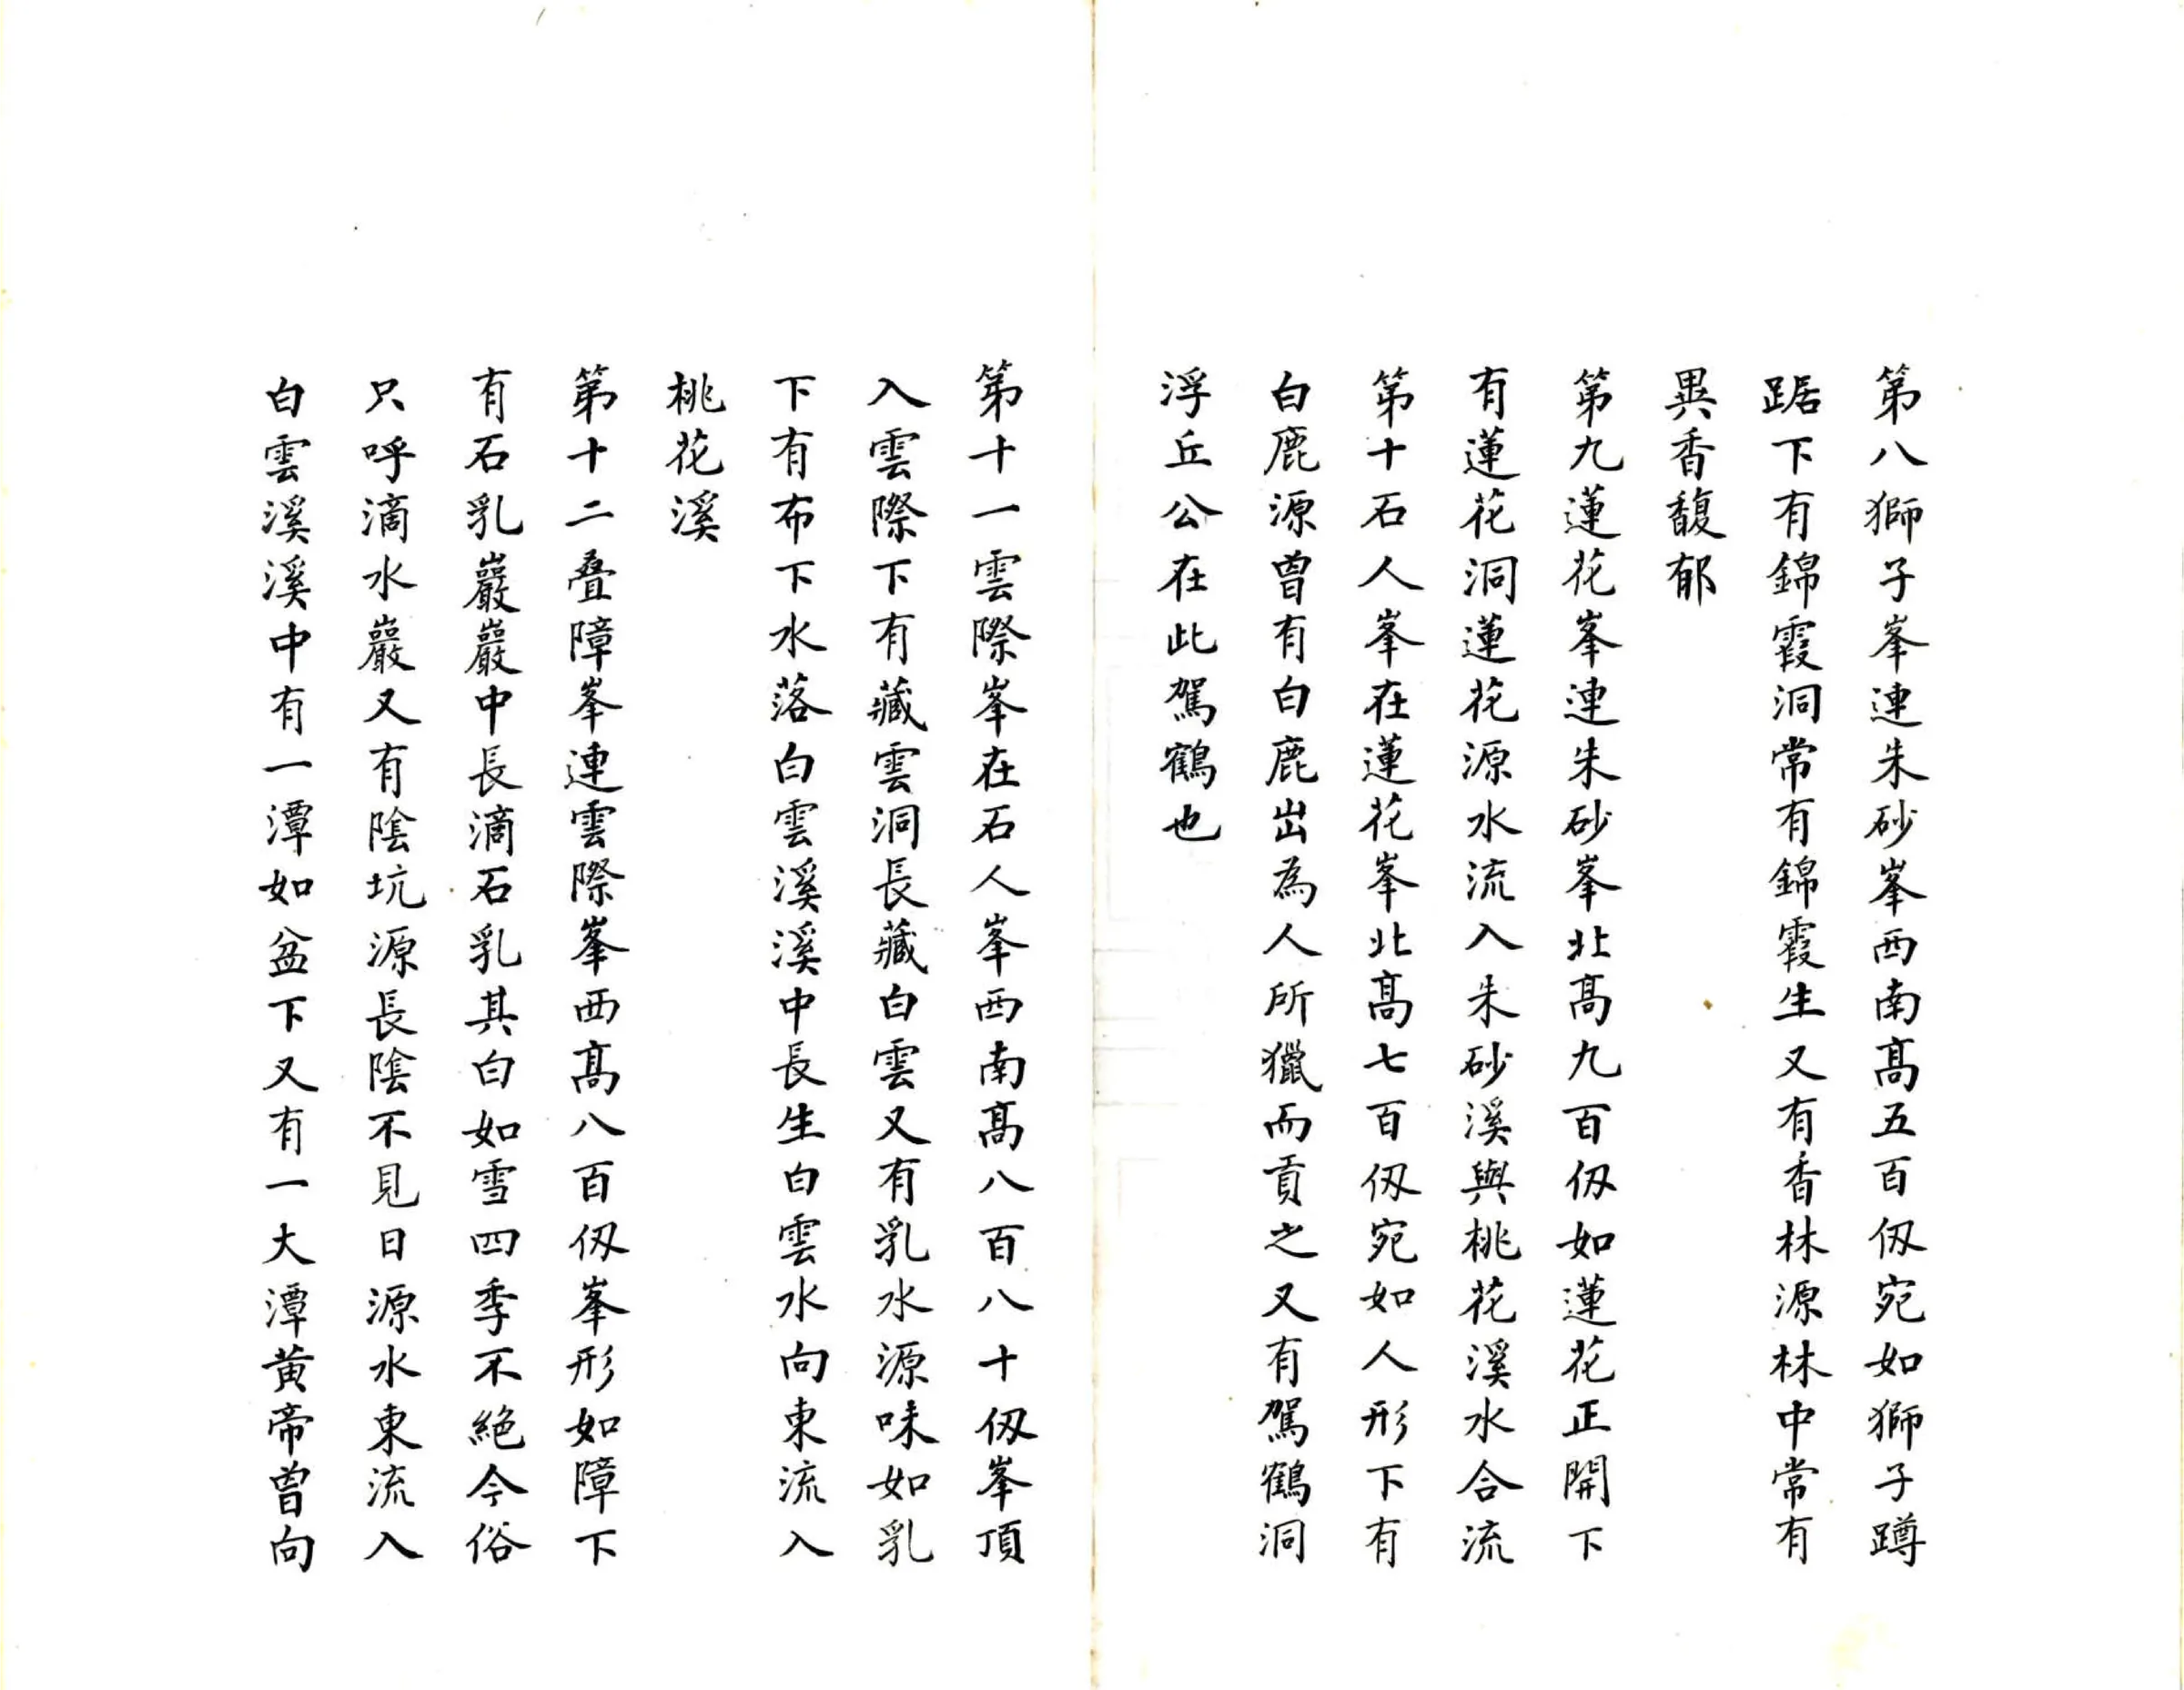 第八獅子峯連朱砂峯西南髙五百仭宛如獅子蹲
踞下有錦霞洞常有錦霞生又有香林源林中常有
異香馥郁
第九蓮花峯連朱砂峯北髙九百仭如蓮花正開下
有蓮花洞蓮花源水流入朱砂溪與桃花溪水合流
第十石人峯在蓮花峯北髙七百仭宛如人形下有
白鹿源曽有白鹿出為人所獵而貢之又有駕鶴洞
浮丘公在此駕鶴也
第十一雲際峯在石人峯西南髙八百八十仭峯頂
入雲際下有藏雲洞長藏白雲又有乳水源味如乳
下有布下水落白雲溪溪中長生白雲水向東流入
桃花溪
第十二疊障峯連雲際峯西髙八百仭峯形如障下
有石乳巖巖中長滴石乳其白如雪四季不絶今俗
只呼滴水巖又有陰坑源長陰不見日源水東流入
白雲溪溪中有一潭如盆下又有一大潭黄帝曽向